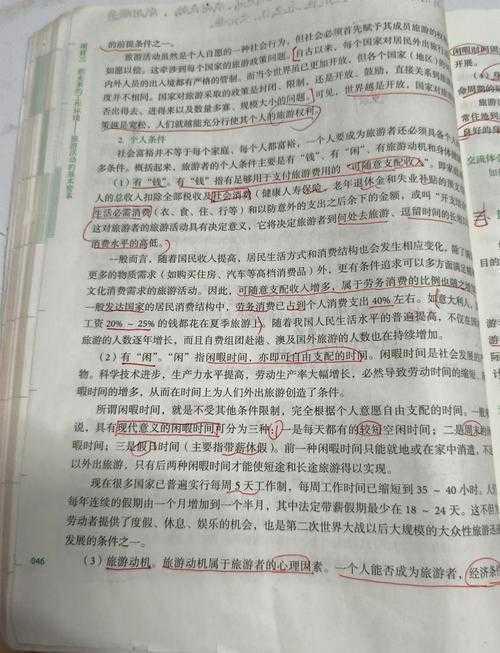 的前提条件之一。
旅游活动虽然是个人自愿的一种社会行为，但社会必须首先赋予其成员旅游的
如愿以偿。这牵涉到每个国家的旅游政策问题。自古以来，每个国家对居民外出旅行
内外人员的出入境都有严格的管制。而当今世界虽已更加开放，但各个国家（地区）的
度并不相同。国家对旅游采取的政策是封闭、限制，还是开放、鼓励，直接关系到旅
否出得去、进得来以及数量多寡、规模大小的问题。可见，世界越是开放，国家对旅
策越是宽松，人们就越能充分行使其个人的旅游权利。
2. 个人条件
社会富裕并不等于每个家庭、每个人都富裕，一个人要成为旅游者还必须具备个人
多条件。概括起来，旅游者的个人条件主要是有“钱”、有“闲”、有旅游动机和身体
（1）有“钱”。有“钱”指有足够用于支付旅游费用的“可随意支配收入”，即家庭
人的总收入扣除全部税收及社会消费（健康人寿保险、老年退休金和失业补贴的预支
生活必需消费（衣、食、住、行等）和以防意外的支出之后余下的金额，或叫“开支
这对旅游者的旅游活动具有决定意义，它将决定旅游者到何处去旅游、逗留时间的长
消费水平的高低。
一般而言，随着国民收入提高，居民生活方式和消费结构也会发生相应变化，除了
更多的物质需求（如购买住房、汽车等高档消费品）外，更有条件追求可以多方面满足
文化消费需求的旅游活动。因此，可随意支配收入增多，属于劳务消费的比例也随之
一般发达国家的居民消费结构中，劳务消费已占到个人消费支出 40% 左右。如意大利人，
工资 20% ~ 25% 的钱都花在夏季旅游上。随着我国人民生活水平的普遍提高，不仅在国
旅游的人数逐年增长，而且自费组团赴港、澳及国外旅游的人数也在持续增加。
（2）有“闲”。“闲”指闲暇时间，亦即可自由支配的时间。闲暇时间是社会发展的
物。科学技术进步，生产力水平提高，劳动生产率大幅增长，必然导致劳动时间的缩短、
暇时间的增多，从而在时间上为人们外出旅游创造了条件。
所谓闲暇时间，就是不受其他条件限制，完全根据个人意愿自由支配的时间。一般
说，具有现代意义的闲暇时间可分为三种：一是每天都有的较短空闲时间；二是周末的
暇时间；三是假日时间（主要指带薪休假）。前一种闲暇时间只能就地或在家中消遣，不
以外出旅游，只有后两种闲暇时间才能使短途和长途旅游得以实现。
现在很多国家已普遍实行每周 5 天工作制，每周工作时间已缩短到 35 ~ 40 小时。人们
每年连续的假期由一个月增加到一个半月，其中法定带薪假期最少在 18 ~ 24 天。这不但
劳动者提供了度假、休息、娱乐的机会，也是第二次世界大战以后大规模的大众性旅游
发展的条件之一。
（3）旅游动机。旅游动机属于旅游者的心理因素。一个人能否成为旅游者，经济条
046